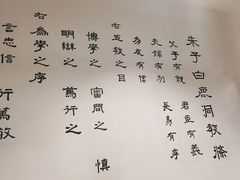 朱子白鹿洞教條
父子有親 君臣有義
夫婦有別 長幼有序
朋友有信
右五教之目
博學之 審問之 慎
明辯之 篤行之
右為學之序
言忠信 行篤敬